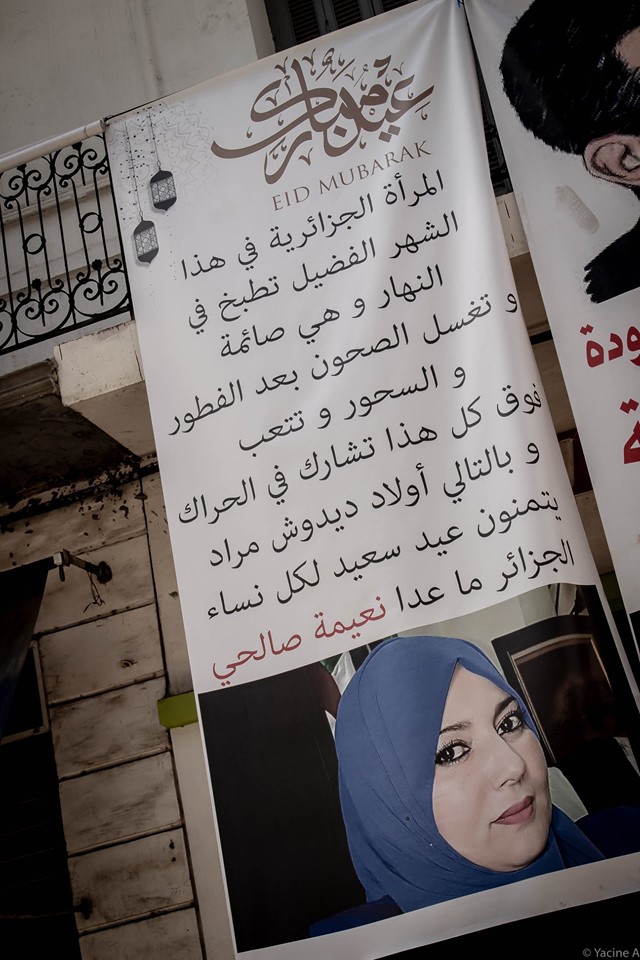 عيد مبارك
EID MUBARAK
المرأة الجزائرية في هذا
الشهر الفضيل تطبخ في
النهار و هي صائمة
و تغسل الصحون بعد الفطور
و السحور و تتعب
فوق كل هذا تشارك في الحراك
و بالتالي أولاد ديدوش مراد
يتمنون عيد سعيد لكل نساء
الجزائر ما عدا نعيمة صالحي
© Yacine A